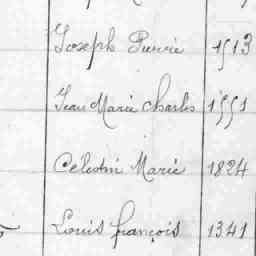 Joseph Pierre 1513
Jean Marie Charles 1551
Celestin Marie 1824
Louis françois 1341